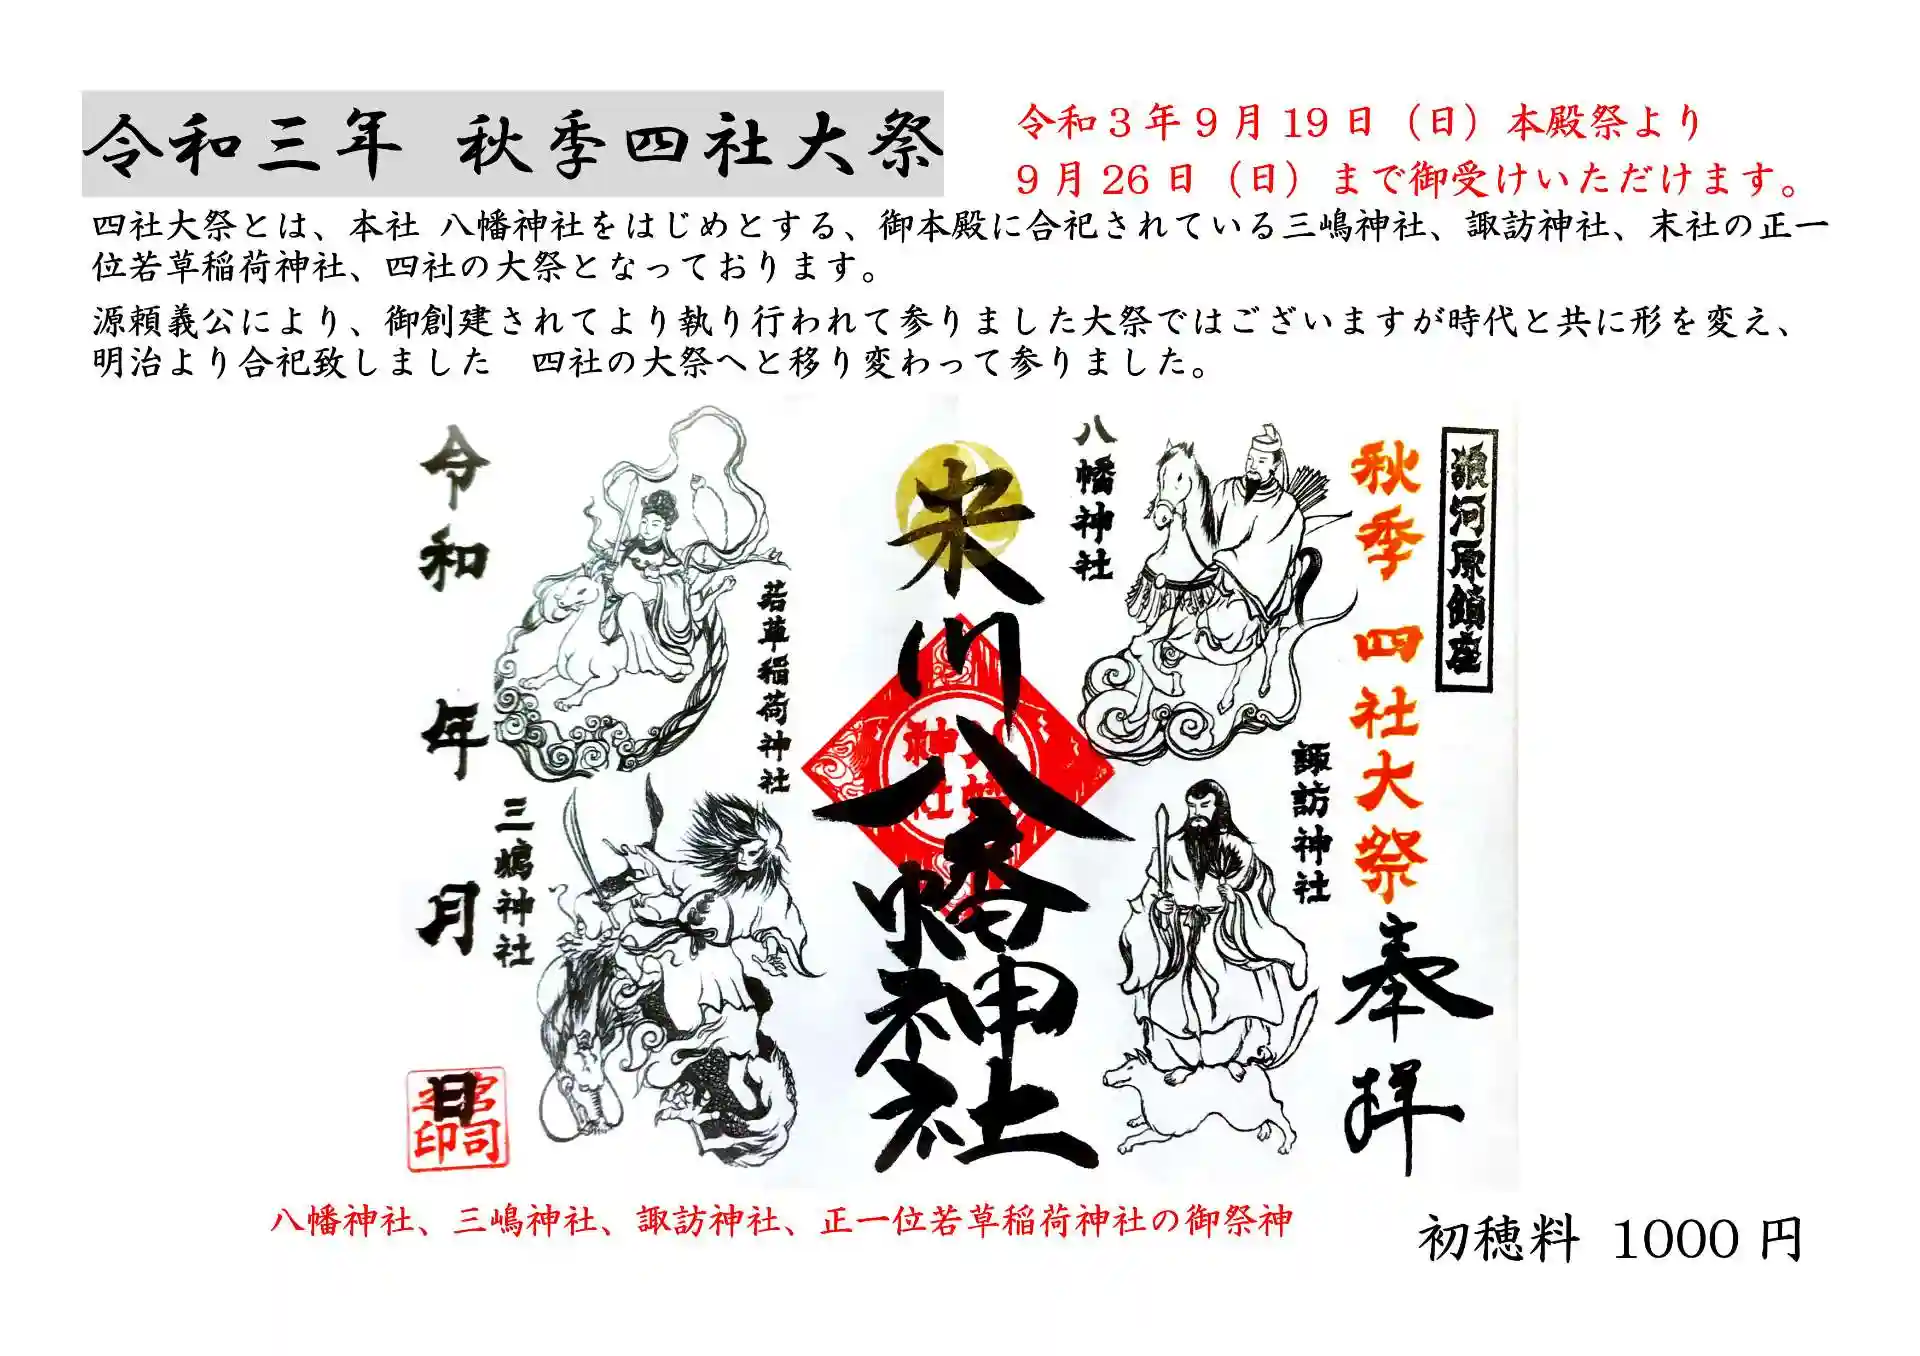 令和三年 秋季四社大祭
令和3年9月19日(日)本殿祭より
9月26日(日)まで御受けいただけます。
四社大祭とは、本社 八幡神社をはじめとする、御本殿に合祀されている三嶋神社、諏訪神社、末社の正一
位若草稲荷神社、四社の大祭となっております。
源頼義公により、御創建されてより執り行われて参りました大祭ではございますが時代と共に形を変え、
明治より合祀致しました 四社の大祭へと移り変わって参りました。
河原鎮座
秋季 四社大祭
奉拝
八幡神社
諏訪神社
米川八幡神社
八幡
神社
若草稲荷神社
三嶋神社
令和 年 月 日
宮司
之印
八幡神社、三嶋神社、諏訪神社、正一位若草稲荷神社の御祭神
初穂料 1000円